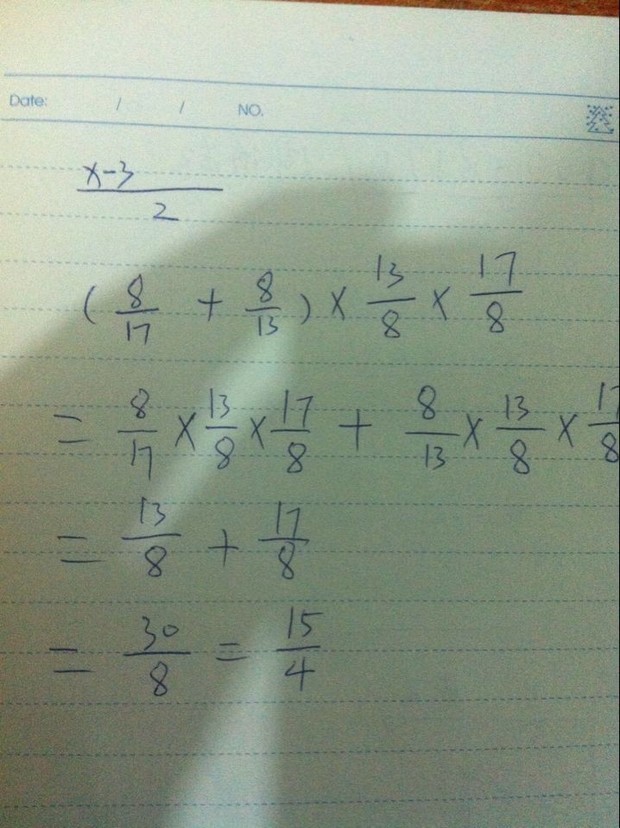 Date: / / NO.
x-3
2
(8/17 + 8/13) × 13/8 × 17/8
= 8/17 × 13/8 × 17/8 + 8/13 × 13/8 × 17/8
= 13/8 + 17/8
= 30/8 = 15/4